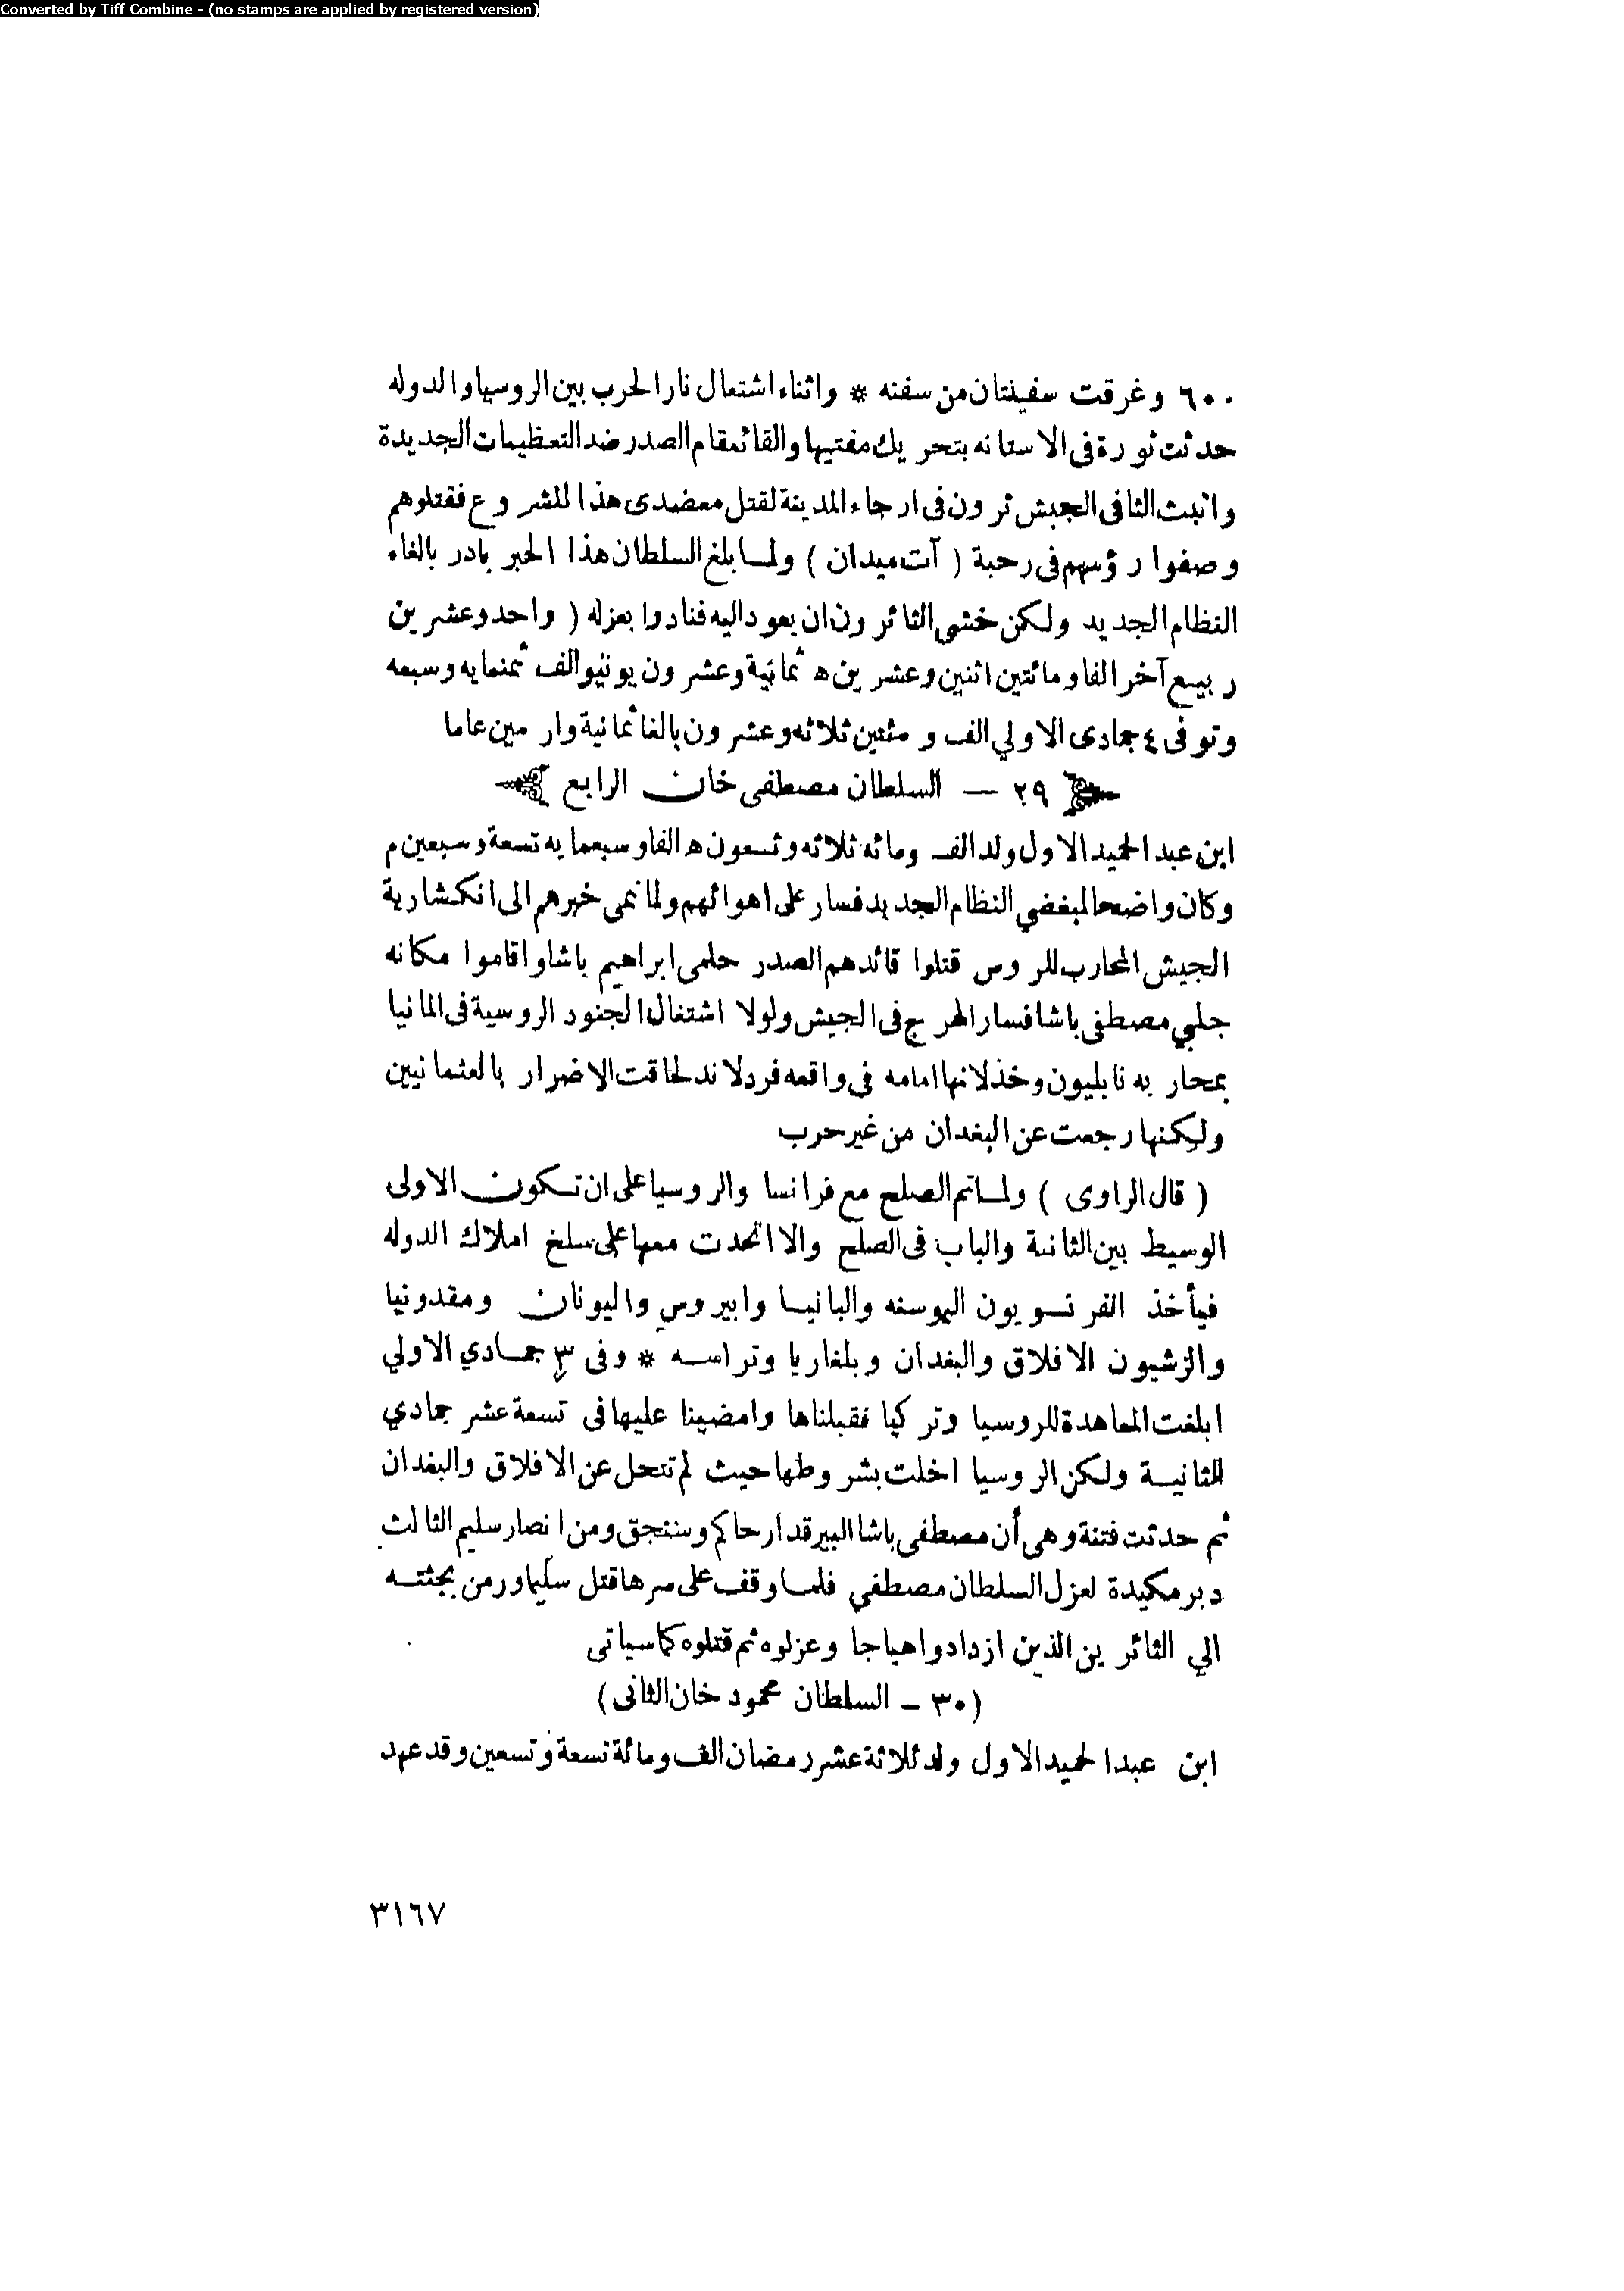 Converted by Tiff Combine - (no stamps are applied by registered version)
٦٠٠ وغرقت سفينتان من سفنه * واثناء اشتعال نار الحرب بين الروسيا والدوله
حدثت ثورة في الاستانه بتحريك مفتيها والقائمقام الصدر ضد التعظيمات الجديدة
وانبث الثا في الجيش ثرون في ارجاء المدينة لقتل معضدى هذا المشروع فقتلوهم
وصفوا رؤسهم في رحبة ( آت ميدان ) ولما بلغ السلطان هذا الخبر بادر بالغاء
النظام الجديد ولكن خشي الثائرون ان يعود اليه فنادوا بعزله ( واحد وعشرين
ربيع آخر الفا ومائتين اثنين وعشرين ه ثمانية وعشرون يونيو الف ثمنمايه وسبعه
وتوفى ٤ جمادى الاولي الف ومئتين ثلاثه وعشرون بالغا ثمانية وار مين عاما
٢٩ — السلطان مصطفى خان الرابع
ابن عبد الحميد الاول ولد الف ومائه ثلاثه وتسعون ه الفا وسبعمايه تسعة وسبعين م
وكان واضحا لمبغضي النظام الجديد فسار على اهوائهم ولما نمى خبرهم الى انكشارية
الجيش المحارب للروس قتلوا قائدهم الصدر حلمى ابراهيم باشا واقاموا مكانه
جلبي مصطفى باشا فسار الهرج في الجيش ولولا اشتغال الجنود الروسية في المانيا
بمحاربه نابليون وخذلانها امامه في واقعه فردلاند لحاقت الاضرار بالعثمانيين
ولكنها رجعت عن البغدان من غير حرب
( قال الراوى ) ولما تم الصلح مع فرانسا والروسيا على ان تكون الاولى
الوسيط بين الثانية والباب في الصلح والا اتحدت معها على سلخ املاك الدوله
فيأخذ الفرنسويون البوسنه والبانيا وابيروس واليونان ومقدونيا
والرشيون الافلاق والبغدان وبلغاريا وتراسه * وفى ٣ جمادي الاولي
ابلغت المعاهدة للروسيا وتركيا فقبلناها وامضينا عليها في تسعة عشر جمادي
الثانية ولكن الروسيا اخلت بشروطها حيث لم تتحل عن الافلاق والبغدان
ثم حدثت فتنة وهى أن مصطفى باشا البيرقدار حاكم وسنتجق ومن انصار سليم الثالث
دبر مكيدة لعزل السلطان مصطفي فلما وقف على سرها قتل سليما ورمن بجثته
الي الثائرين الذين ازدادوا هياجا وعزلوه ثم قتلوه كما سياتى
(٣٠ – السلطان محمود خان الثانى)
ابن عبد الحميد الاول ولد ثلاثة عشر رمضان الف ومائة تسعة وتسعين وقد عهد
٣١٦٧